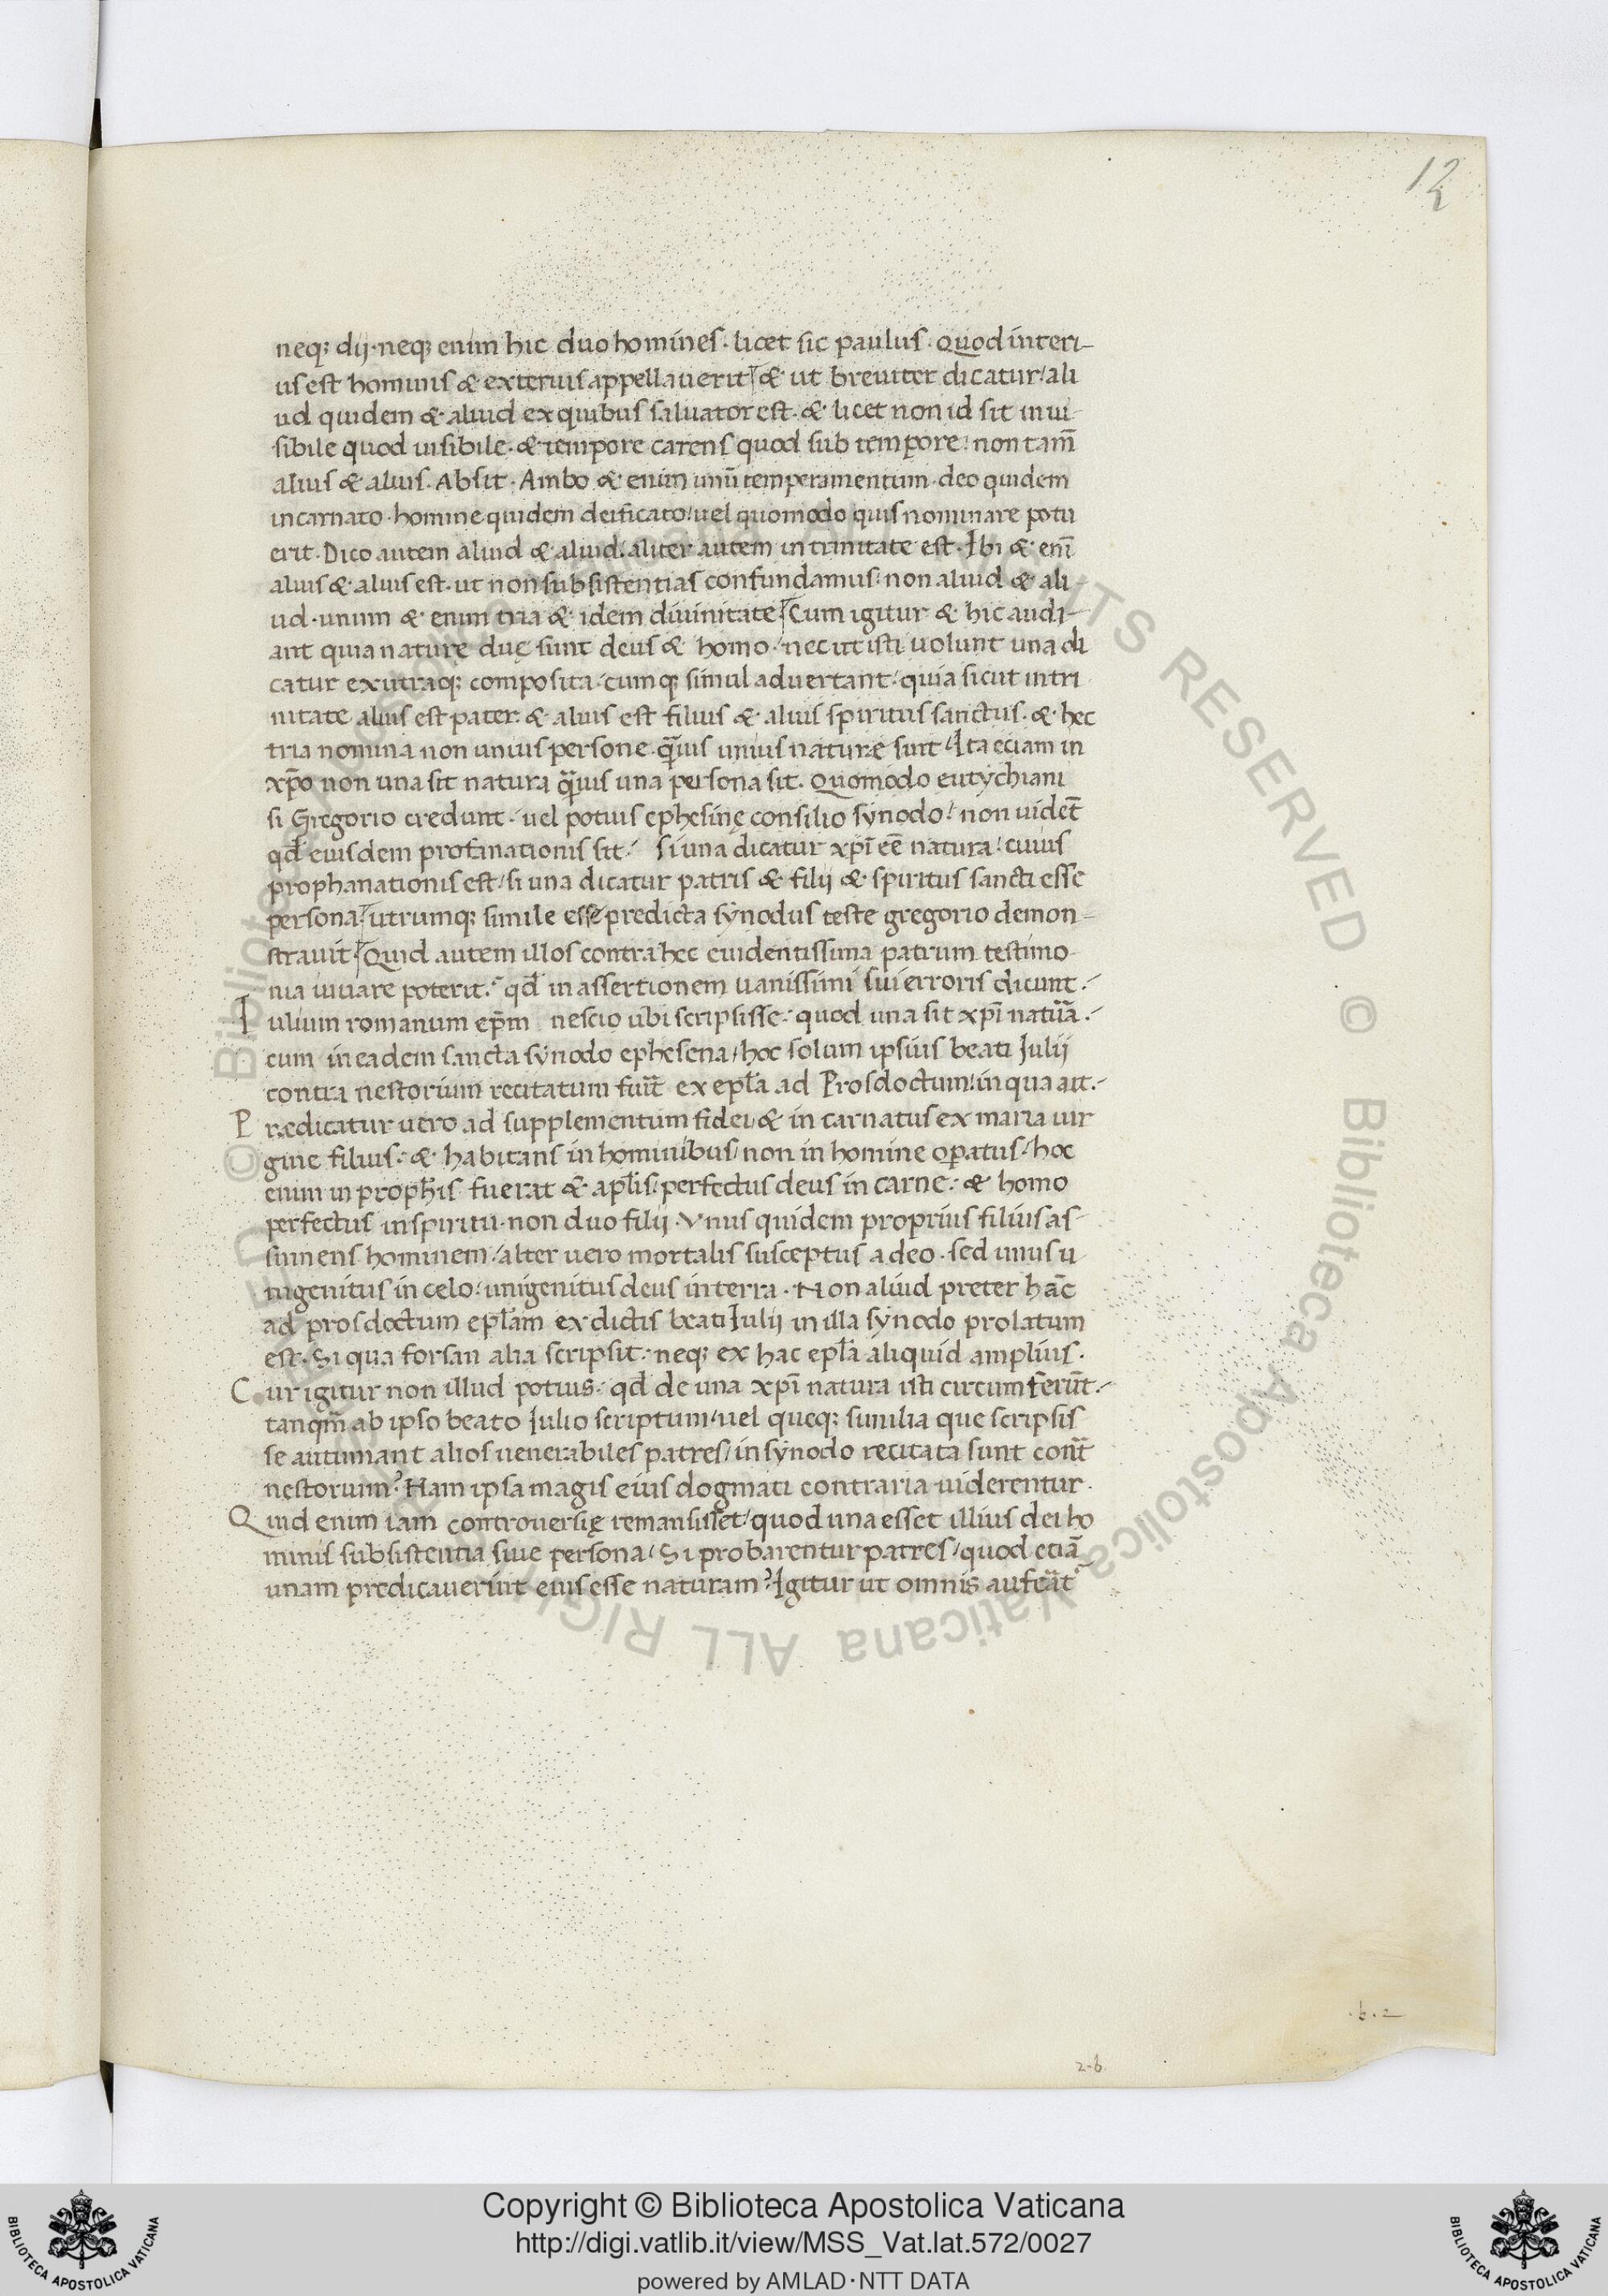 12
neq; dij · neq; enim hic duo homines · licet sic paulus · quod interi-
us est hominis & exterius appellauerit & ut breuiter dicatur / ali
ud quidem & aliud ex quibus saluator est · & licet non id sit inui-
sibile quod uisibile · & tempore carens quod sub tempore : non tam̄
alius & alius · Absit · Ambo & enim unū temperamentum · deo quidem
incarnato · homine quidem deificato / uel quomodo quis nominare potu
erit · Dico autem aliud & aliud / aliter autem in trinitate est · Ibi & enī
alius & alius est · ut non subsistentias confundamus : non aliud & ali
ud · unum & enim tria & idem diuinitate Cum igitur & hic audi-
ant quia naturę duę sunt deus & homo · nec ut isti uolunt una di
catur ex utraq; composita · cumq; simul aduertant · quia sicut in tri
nitate alius est pater & alius est filius & alius spiritus sanctus · & hec
tria nomina non unius persone · q̄uis unius nature sint / Ita eciam in
xp̄o non una sit natura q̄uis una persona sit · Quomodo eutychiani
si Gregorio credunt · uel potius ephesinę consilio synodo / non uidet̄
qđ eiusdem profanationis sit · si una dicatur xpī eē natura / cuius
prophanationis est / si una dicatur patris & filij & spiritus sancti esse
persona utrumq; simile esse predicta synodus teste gregorio demon-
strauit Quid autem illos contra hec euidentissima patrum testimo-
nia iuuare poterit · qđ in assertionem uanissimi sui erroris dicunt ·
Iulium romanum ep̄m nescio ubi scripsisse · quod una sit xpī natur̄a ·
cum in eadem sancta synodo ephesena / hoc solum ipsius beati Iulij
contra nestorium recitatum fuit̄ ex epl̄a ad Prosdoctum / in qua ait ·
Prædicatur uero ad supplementum fidei / & incarnatus ex maria uir
gine filius · & habitans in hominibus / non in homine opatus / hoc
enim in proph̄is fuerat & apl̄is · perfectus deus in carne · & homo
perfectus in spiritu · non duo filij · Vnus quidem proprius filius as-
sumens hominem / alter uero mortalis susceptus a deo · sed unus u
nigenitus in celo / unigenitus deus in terra · Non aliud preter hāc
ad prosdoctum epl̄am ex dictis beati Iulij in illa synodo prolatum
est · Si qua forsan alia scripsit · neq; ex hac epl̄a aliquid amplius ·
Cur igitur non illud potius · qđ de una xpī natura isti circumferūt ·
tanq̄m ab ipso beato Iulio scriptum / uel queq; similia que scripsis
se autumant alios uenerabiles patres / in synodo recitata sunt cont̄
nestorium? Nam ipsa magis eius dogmati contraria uiderentur ·
Quid enim iam controuersię remansisset / quod una esset illius dei ho
minis subsistentia siue persona / Si probarentur patres / quod eciā
unam predicauerint eius esse naturam? Igitur ut omnis aufeāt
· b · 2
2 - b
© Biblioteca Apostolica Vaticana ALL RIGHTS RESERVED
Copyright © Biblioteca Apostolica Vaticana
http://digi.vatlib.it/view/MSS_Vat.lat.572/0027
powered by AMLAD · NTT DATA
BIBLIOTECA APOSTOLICA VATICANA
BIBLIOTECA APOSTOLICA VATICANA